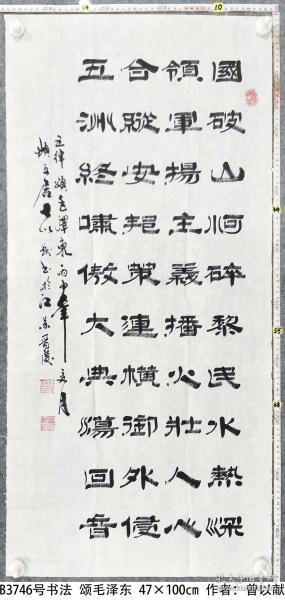 國破山河碎黎民水熱深
領軍揚主義播火壯人心
合縱安邦策連橫御外侵
五洲終嘯傲大典蕩回音
五律頌毛澤東丙申年
於江蘇
B3746号书法 颂毛泽东 47×100cm 作者：曾以献